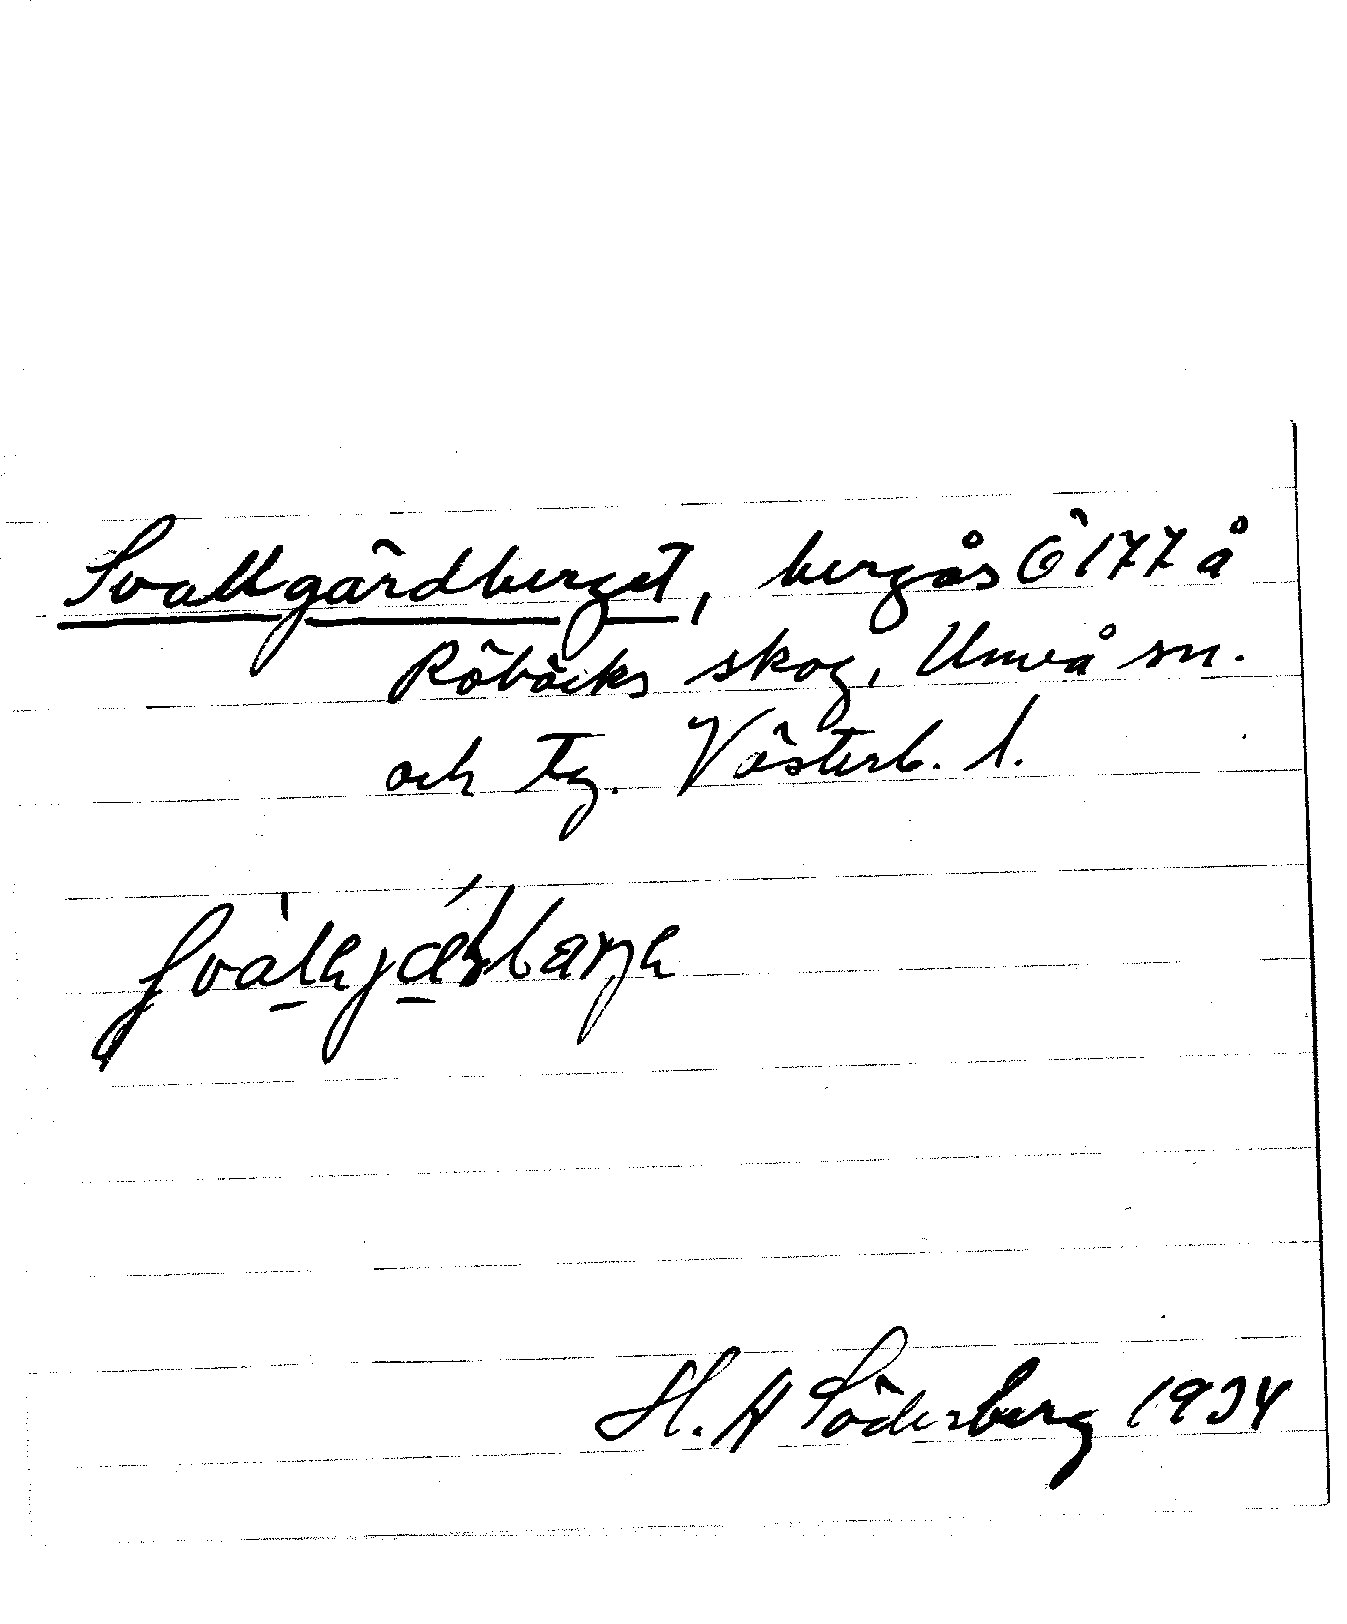 Svallgärdberget, bergås Ö 177 å
Röbäcks skog, Umeå sn.
och tg. Västerb. l.
H. A Söderberg 1934